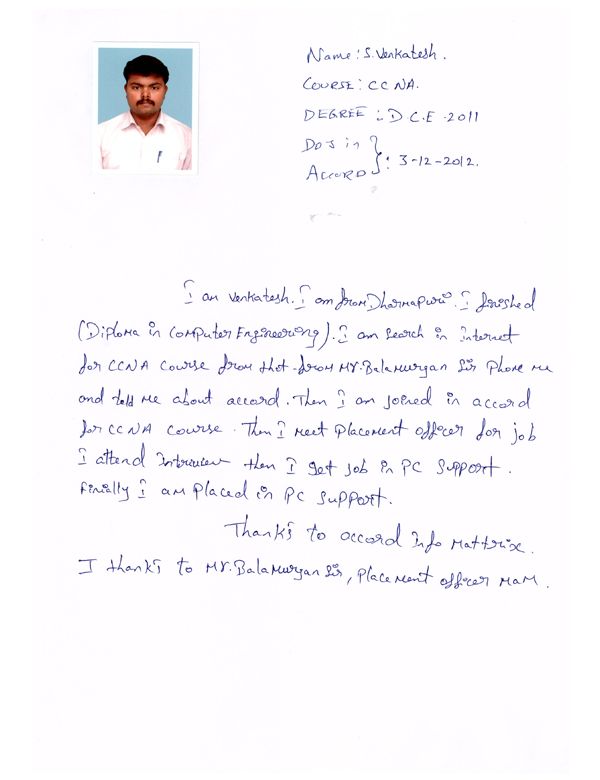 Name: S. Venkatesh.
COURSE: CCNA.
DEGREE: D.C.E - 2011
DOJ in
ACCORD } : 3-12-2012.
I am Venkatesh. I am from Dharmapuri. I finished
(Diploma in Computer Engineering). I am search in Internet
for CCNA course from that - from Mr. Balamurgan Sir Phone me
and told me about accord. Then I am joined in accord
for CCNA course. Then I meet placement officer for job
I attend Interview then I get job in PC Support.
Finially I am placed in PC Support.
Thank's to accord Info Mattrix.
I thank's to Mr. Balamurgan Sir, Placement officer Mam.